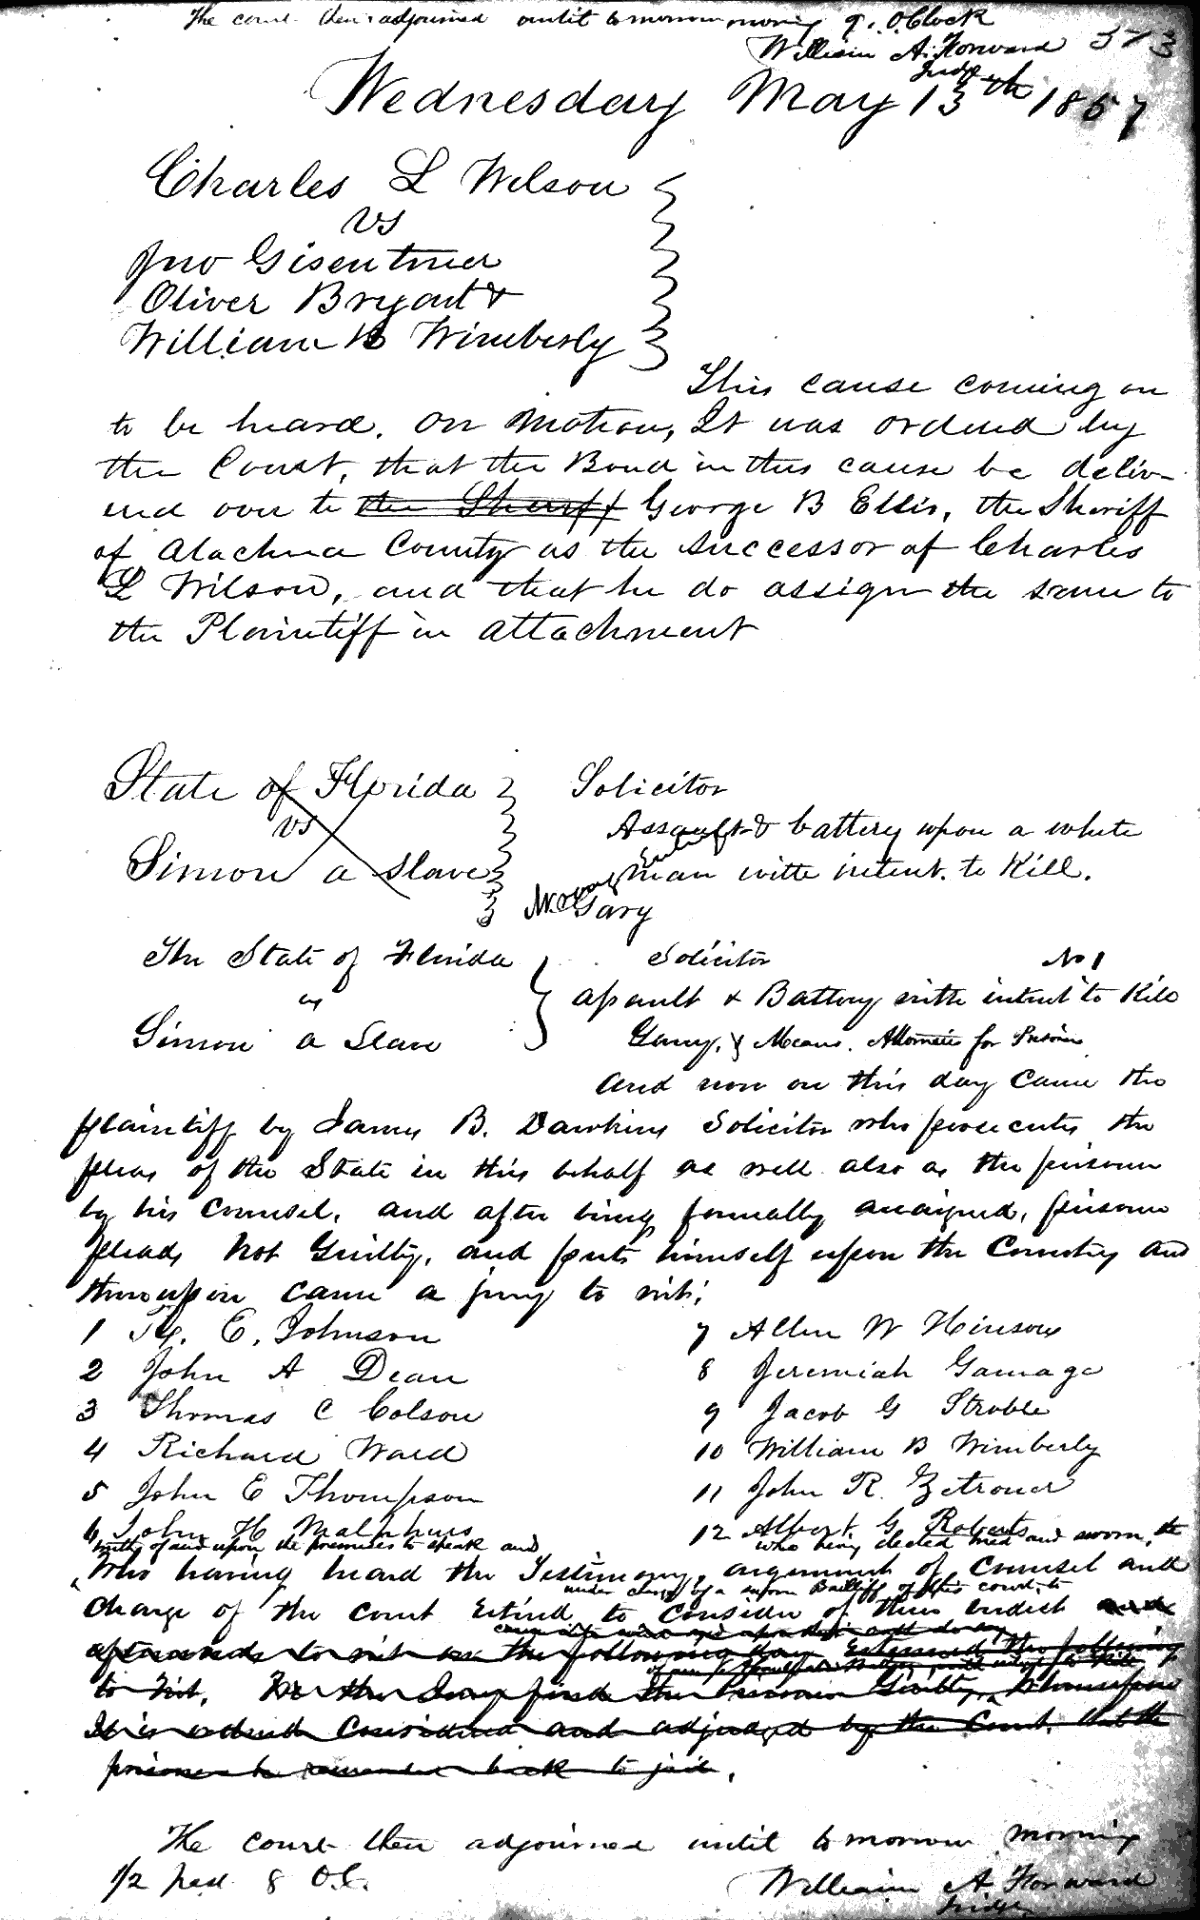 The court then adjourned until tomorrow morning 9. O.Clock
William A. Forward 373
Judge
Wednesday May 13th 1857
Charles L Wilson
vs
Jno Gisentrner
Oliver Bryant &
William B Wimberly
This cause coming on
to be heard. On Motion, It was ordered by
the Court, that the Bond in this cause be deliv-
ered over to the Sheriff George B Ellis, the Sheriff
of Alachua County as the successor of Charles
L Wilson, and that he do assign the same to
the Plaintiff in attachment
State of Florida
vs
Simon a slave
Solicitor
Assault & battery upon a white
man with intent to Kill.
Gary
The State of Florida Solicitor No 1
vs
Assault & Battery with intent to Kill
Simon a Slave Gary, & Means. Attornies for Prisoner
And now on this day came the
plaintiff by James B. Dawkins Solicitor who prosecutes the
pleas of the State in this behalf as well also as the prisoner
by his counsel, and after being formally arraigned, prisoner
pleads Not Guilty, and puts himself upon the Country and
thereupon came a jury to wit;
1 E. Johnson
2 John A Dean
3 Thomas C Colson
4 Richard Ward
5 John E Thompson
6 John H Malphurs
7 Allen W Hinson
8 Jeremiah Gamage
9 Jacob G Stroble
10 William B Wimberly
11 John R. Zetrouer
12 Albert G Roberts
who being elected tried and sworn, the
truth of and upon the premises to speak and
who having heard the Testimony, argument of Counsel and
under charge of a sworn Bailiff of this court, to
charge of the court retired to consider of their verdict and
afterwards to wit on the following day returned the following
to wit, We the Jury find the Prisoner Guilty, Whereupon
It is ordered Considered and adjudged by the Court, that the
prisoner be remanded back to jail.
The court then adjourned until tomorrow morning
1/2 past 8 O.C.
William A Forward
Judge